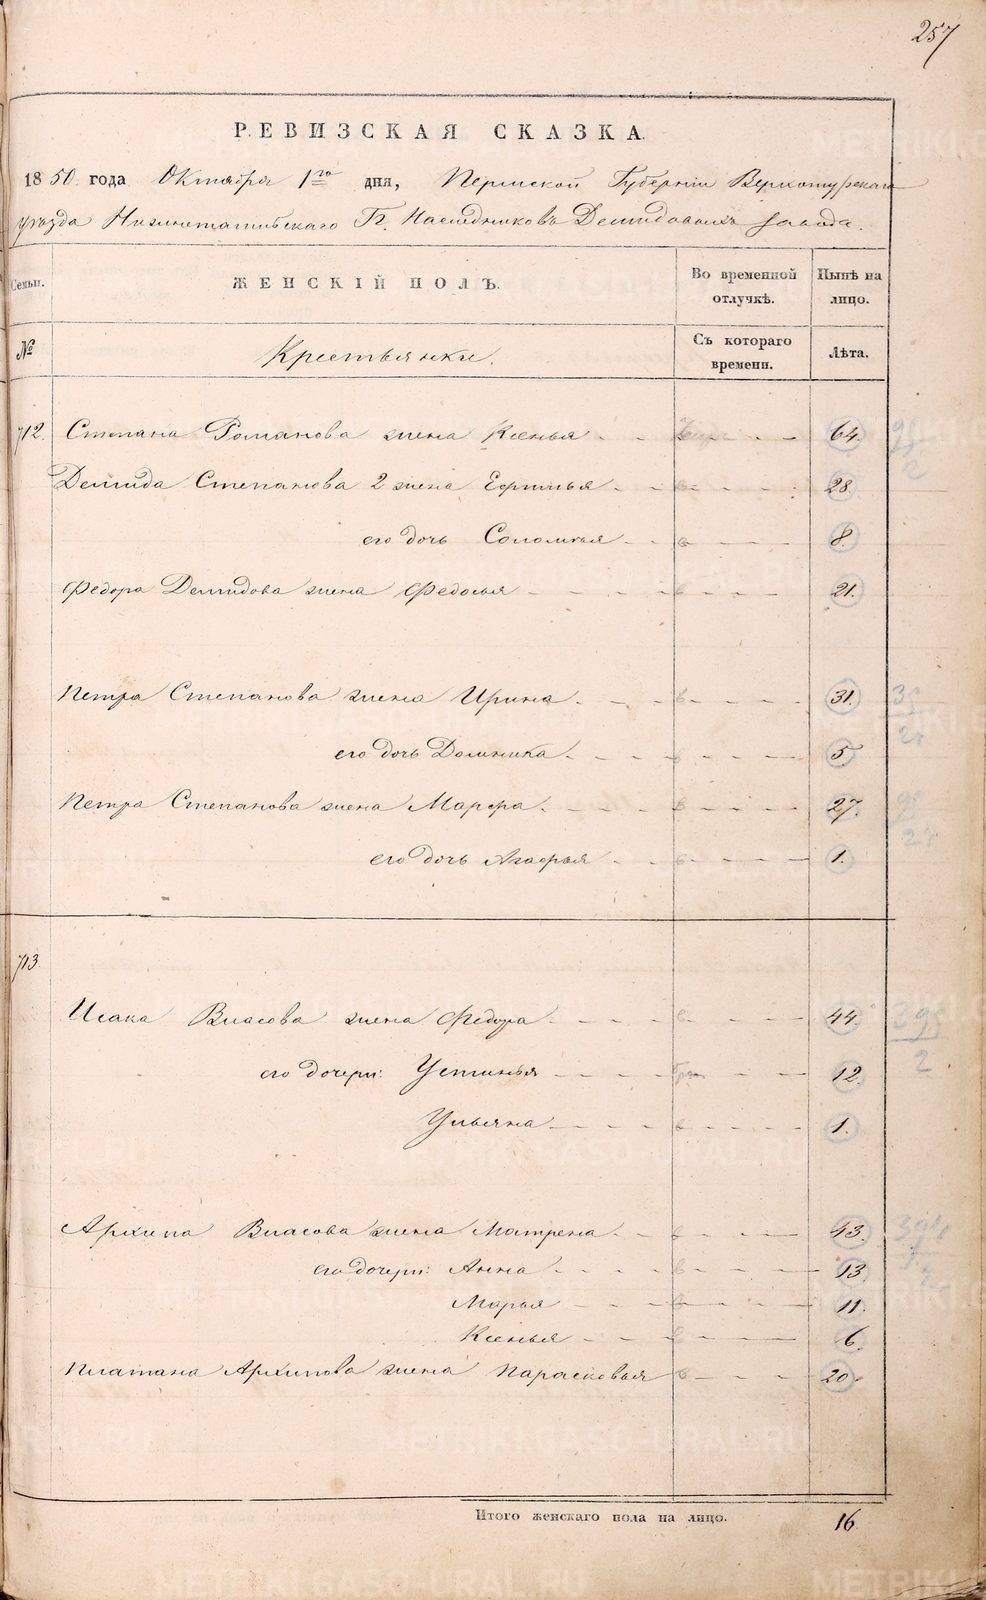 257
РЕВИЗСКАЯ СКАЗКА.
1850 года Октября 1го дня, Пермской Губернии Верхотурскаго
уѣзда Нижнетагильскаго Гг. Наследниковъ Демидовыхъ завода.
Семьи. ЖЕНСКІЙ ПОЛЪ. Во временной отлучкѣ. Нынѣ на лицо.
№ Крестьянки. Съ котораго времени. Лѣта.
712. Степана Романова жена Ксенья 64.
Демида Степанова 2 жена Ефимья 28.
его дочь Соломия 8.
Федора Демидова жена Федосья 21.
Петра Степанова жена Ирина 31.
его дочь Домника 5
Петра Степанова жена Марфа 27.
его дочь Агафья 1.
713
Исака Власова жена Федора 44.
его дочери: Устинья 12.
Ульяна 1.
Архипа Власова жена Матрена 43.
его дочери: Анна 13.
Марья 11.
Ксенья 6.
Платана Архипова жена Парасковья 20.
Итого женскаго пола на лицо. 16
METRIKI.GASO-URAL.RU